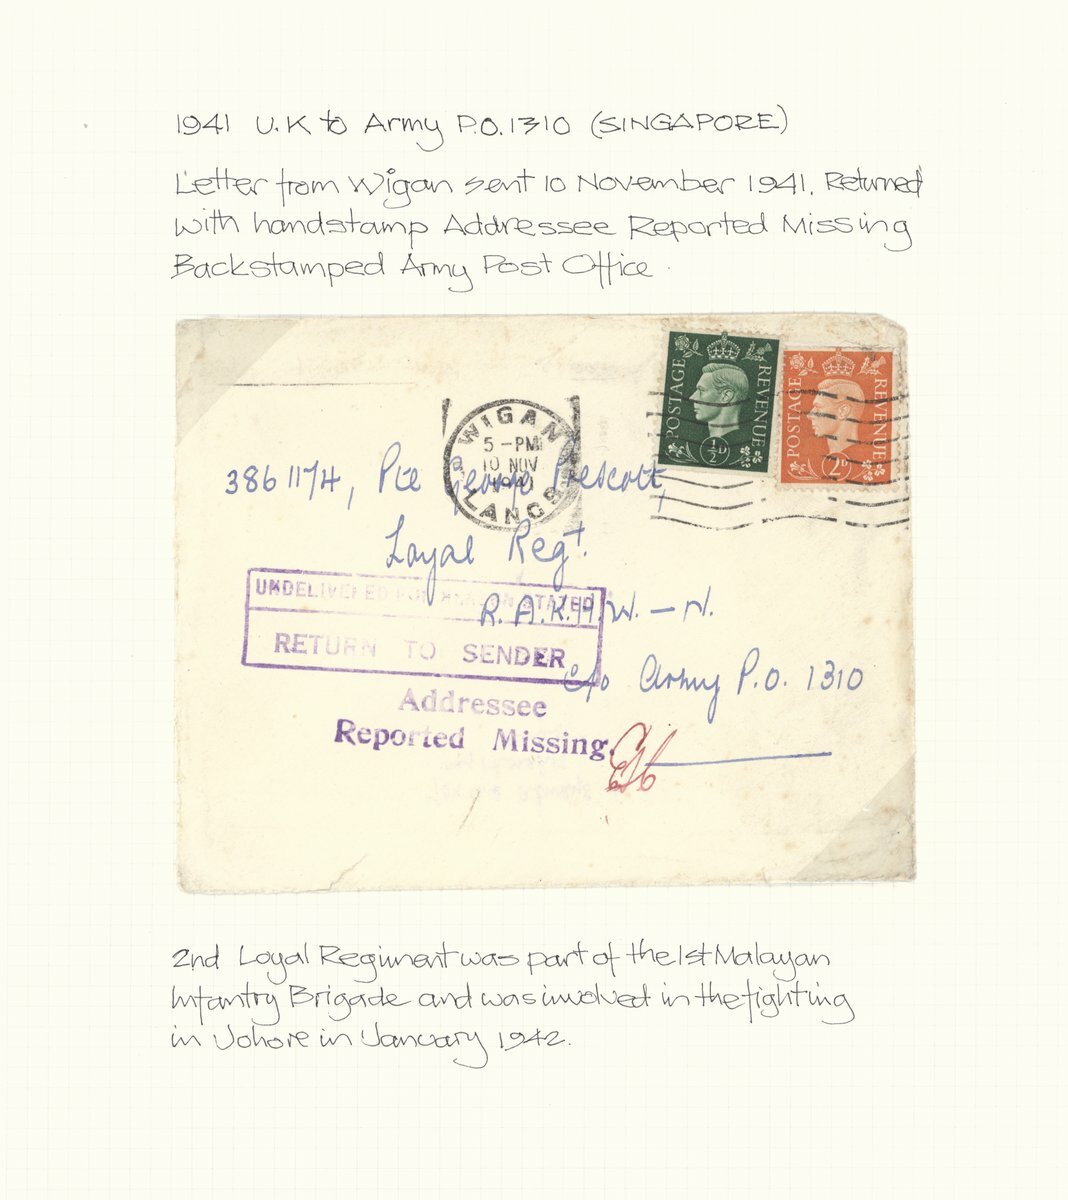 1941 U.K to Army P.O. 1310 (SINGAPORE)
Letter from Wigan sent 10 November 1941. Returned
with handstamp Addressee Reported Missing
Backstamped Army Post Office.
POSTAGE REVENUE
½D
POSTAGE REVENUE
2D
WIGAN
5-PM
10 NOV
1941
LANCS
3861174, Pte George Prescott,
Loyal Regt.
UNDELIVERED FOR REASON STATED
RETURN TO SENDER
R.A.K.H.W. - N.
c/o Army P.O. 1310
Addressee
Reported Missing.
2nd Loyal Regiment was part of the 1st Malayan
Infantry Brigade and was involved in the fighting
in Johore in January 1942.